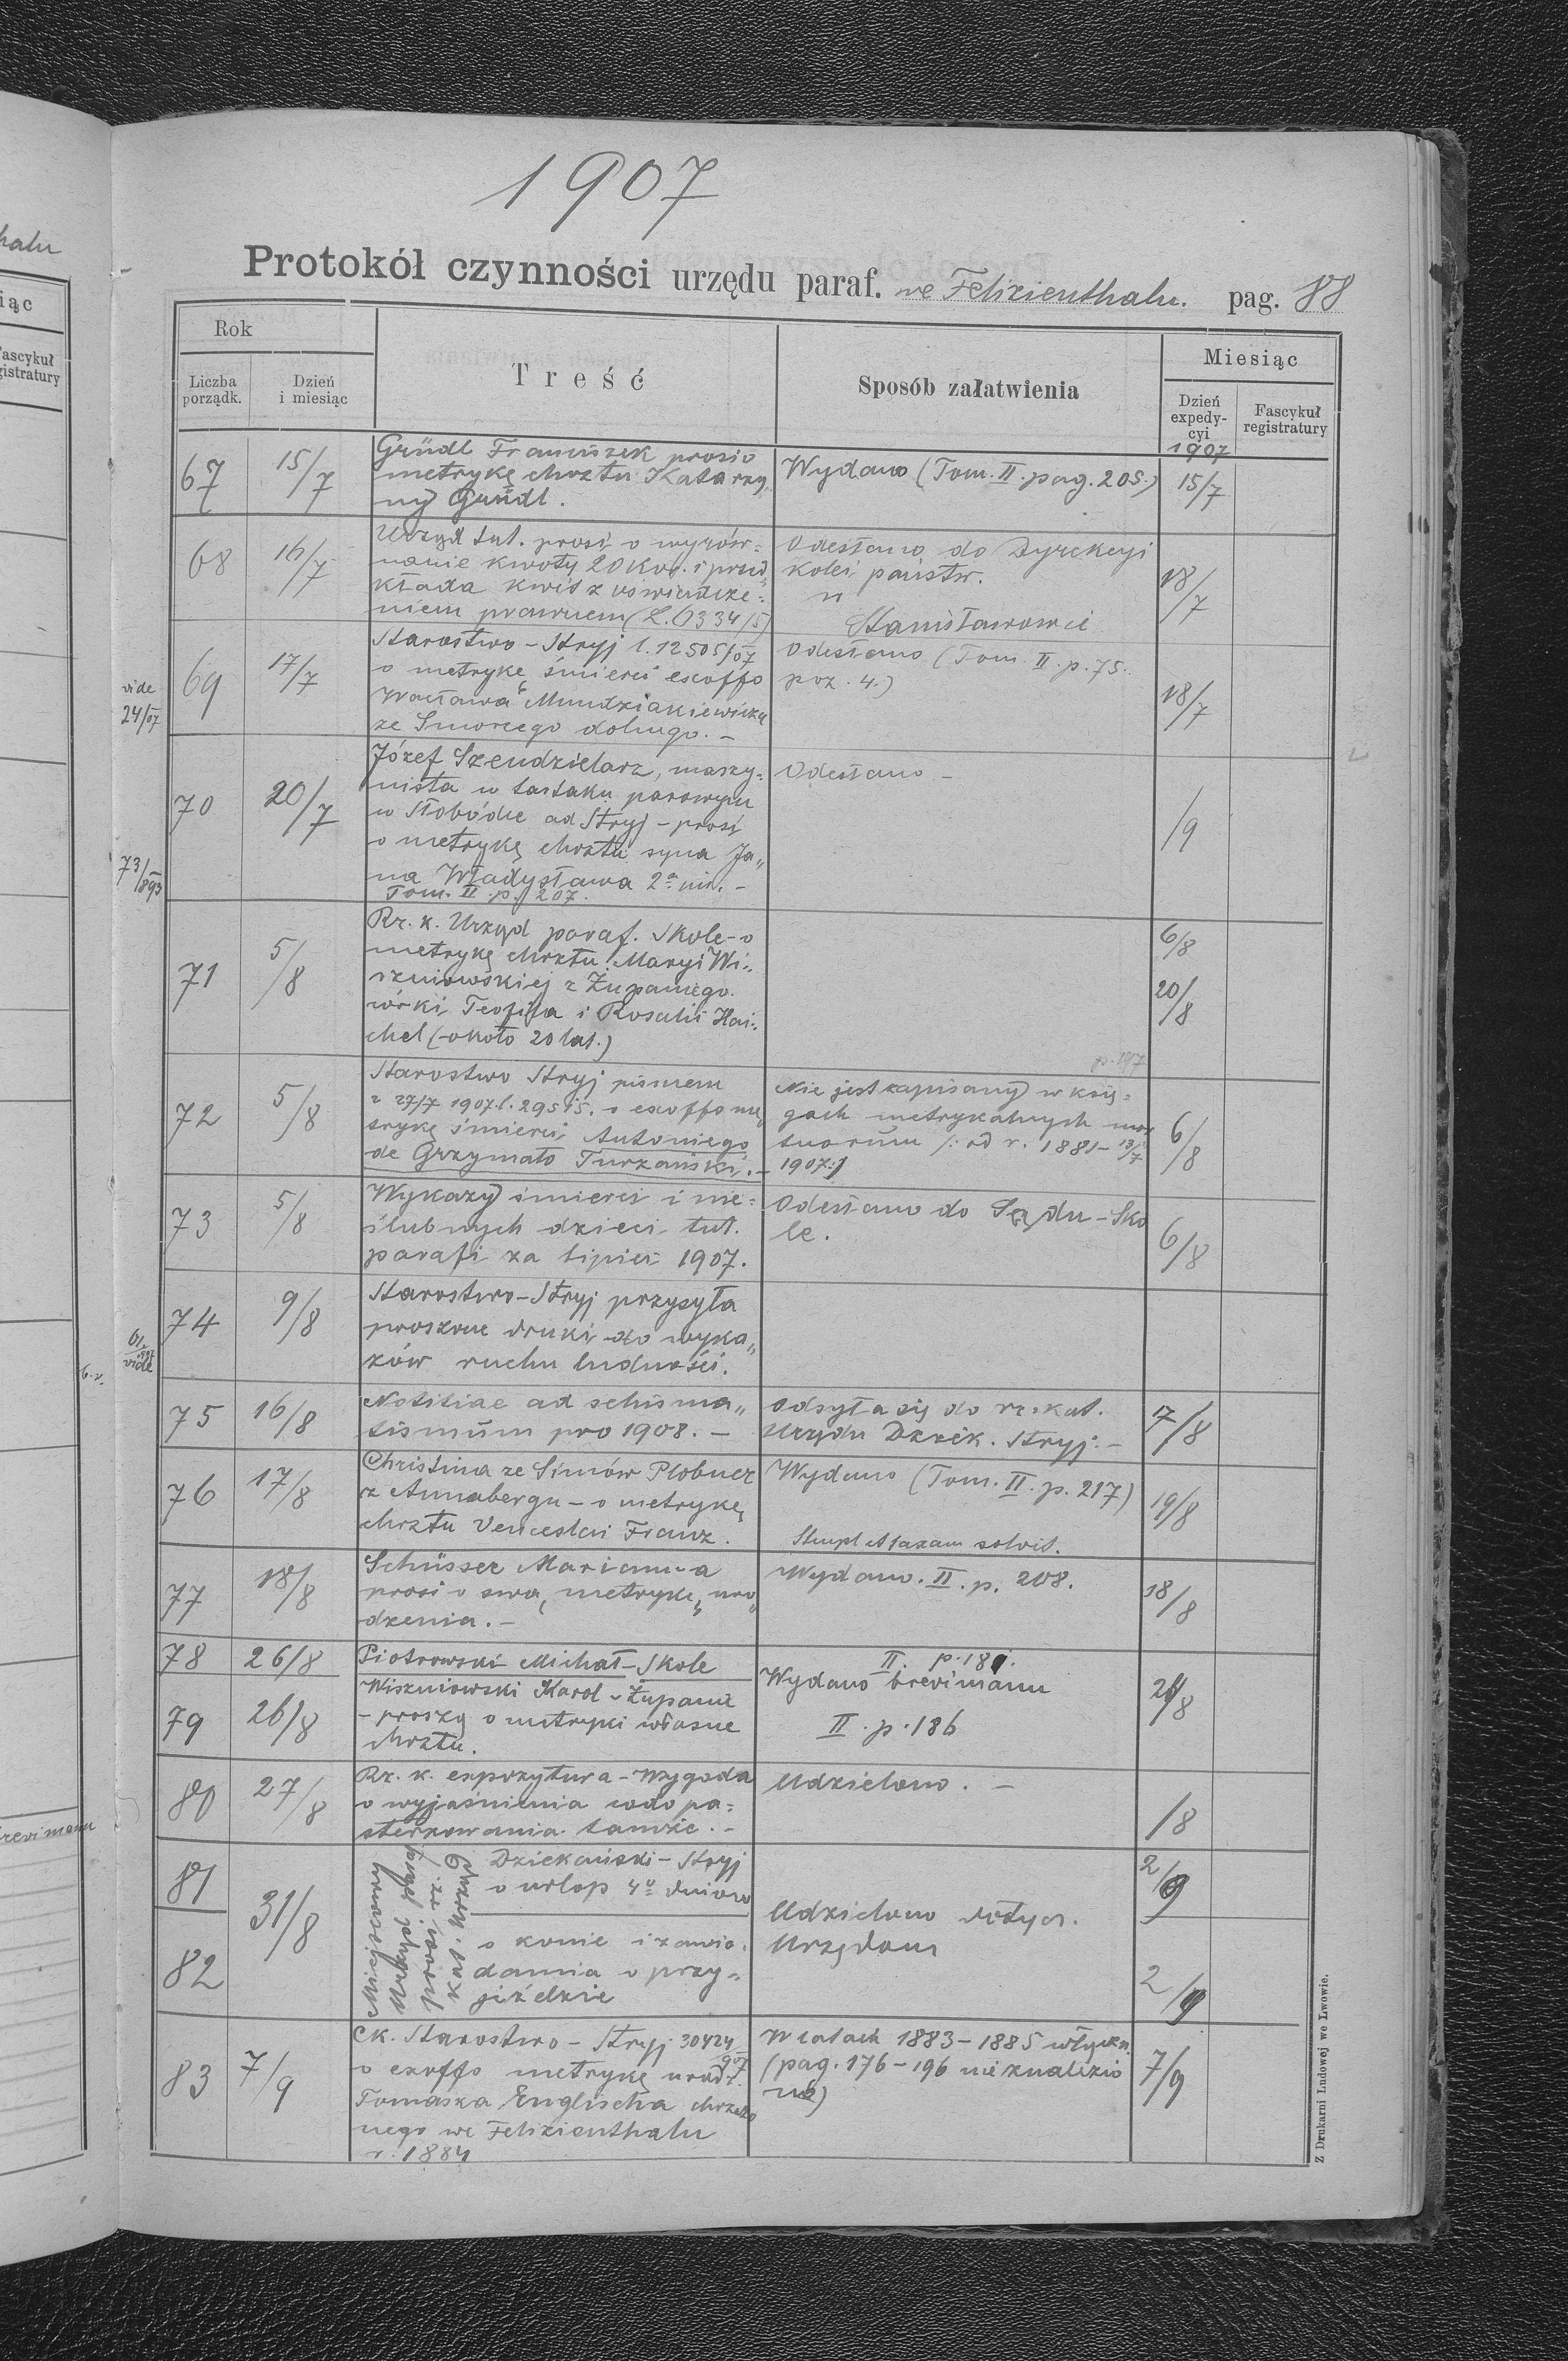 halu
iąc
Fascykuł
gistratury
revimanu
1907
Protokół czynności urzędu paraf. we Felizienthalu. pag. 88
Rok
Liczba porządk.
Dzień i miesiąc
Treść
Sposób załatwienia
Miesiąc
Dzień expedy-cyi
1907
Fascykuł registratury
67
15/7
Gründl Franciszek prosi o
metrykę chrztu Katarzy„
ny Gründl.
Wydano (Tom. II. pag. 205.)
15/7
68
16/7
Urząd tut. prosi o wyrów=
nanie kwoty 20 Kor. i przed„
kłada kwit z oświadcze=
niem prawnem (L. 6334/5)
Odesłano do Dyrekcyi
kolei państw.
w
Stanisławowie
18/7
vide
24/07
69
17/7
Starostwo - Stryj l. 12505/07
o metrykę śmierci exoffo
Wacława Mundziakiewicza
ze Smorzego dolnego. -
Odesłano (Tom. II. p. 75.
poz. 4.)
18/7
73/893
70
20/7
Józef Szendzielarz, maszy=
nista w tartaku parowym
w Słobódce ad Stryj - prosi
o metrykę chrztu syna Ja„
na Władysława 2a im. -
Tom. II. p. 207.
Odesłano -
/9
71
5/8
Rz. k. Urząd paraf. Skole - o
metrykę chrztu Maryi Wi„
szniowskiej z Żupaniego.
córki Teofila i Rosalii Hai„
chel (- około 20 lat.)
6/8
20/8
72
5/8
Starostwo Stryj pismem
z 27/7 1907 l. 29515. o exoffo me
trykę śmierci Antoniego
de Grzymało Turzański. -
Nie jest zapisany w księ=
gach metrykalnych mor
tuorum /: od r. 1881 - 13/7
1907:/
6/8
73
5/8
Wykazy śmierci i nie=
ślubnych dzieci tut.
parafi za lipiec 1907.
Odesłano do Sądu - Sko
le.
6/8
vide
74
9/8
Starostwo - Stryj przysyła
proszone druki do wyka„
zów ruchu ludności.
75
16/8
Notitiae ad schisma„
tismum pro 1908. -
Odsyła się do rz. kat.
Urzędu Dziek. Stryj. -
17/8
76
17/8
Christina ze Simów Plobner
z Annabergu - o metrykę
chrztu Venceslai Franz.
Wydano (Tom. II. p. 217)
Stempl et taxam solvit.
19/8
77
18/8
Schüsser Marianna
prosi o swą metrykę uro„
dzenia. -
Wydano. II. p. 208.
18/8
78
26/8
Piotrowski Michał - Skole
II. p. 181.
79
26/8
Wiszniowski Karol - Żupanie
- proszą o metryki własne
chrztu.
Wydano brevi manu
II. p. 186
26/8
80
27/8
Rz. k. expozytura - Wygoda
o wyjaśnienia co do pa=
sterzowania tamże. -
Udzielono. -
/8
81
31/8
Miejscowy
Urząd paraf.
prosi rz.
kat. Urząd
Dziekański - Stryj
o urlop 4u dniow
2/9
82
o konie i zawia=
damia o przy=
jeździe
Udzielono dotycz.
Urzędom
2/9
83
7/9
Ck. Starostwo - Stryj 30424/907
o exoffo metrykę urodz.
Tomasza Englischa chrzczo
nego we Felizienthalu
r. 1884
W latach 1883 - 1885 włączn.
(pag. 176 - 196 nie znalezio
no)
7/9
Z Drukarni Ludowej we Lwowie.